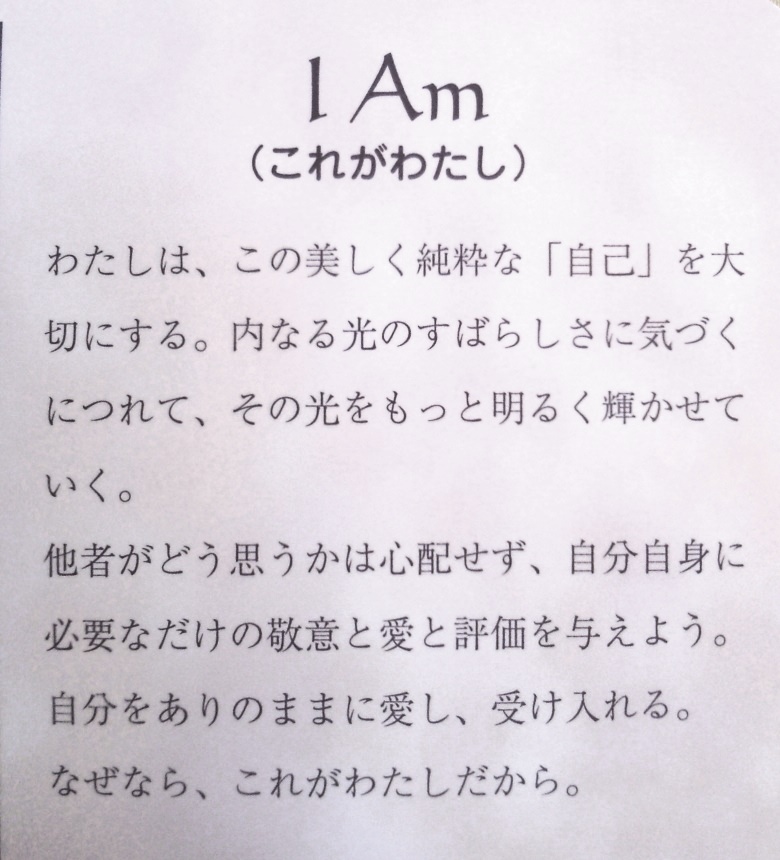 I Am
（これがわたし）
わたしは、この美しく純粋な「自己」を大
切にする。内なる光のすばらしさに気づく
につれて、その光をもっと明るく輝かせて
いく。
他者がどう思うかは心配せず、自分自身に
必要なだけの敬意と愛と評価を与えよう。
自分をありのままに愛し、受け入れる。
なぜなら、これがわたしだから。